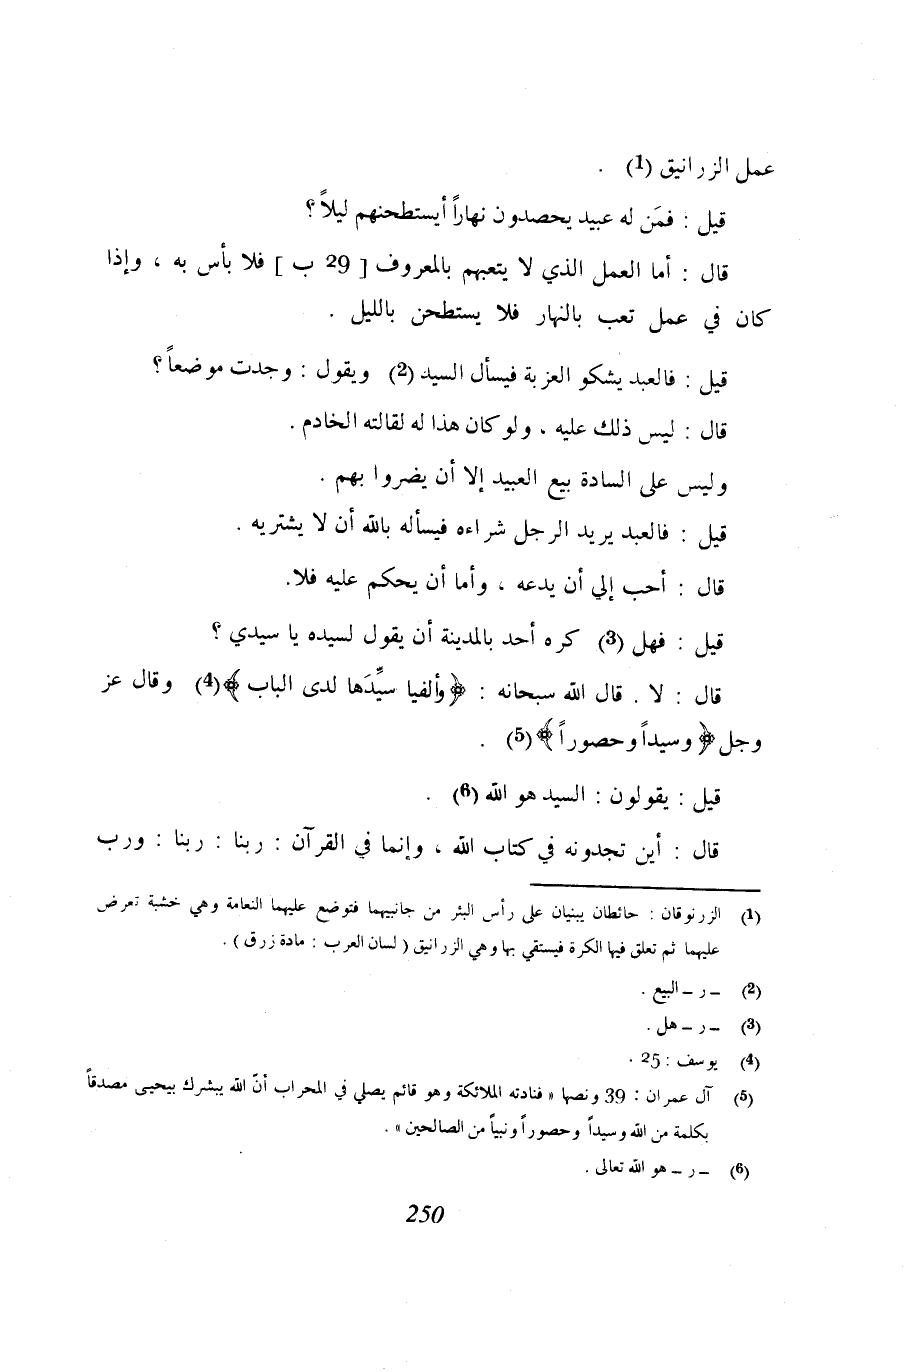 عمل الزرانيق (1) .
قيل : فمَن له عبيد يحصدون نهاراً أيستطحنهم ليلاً ؟
قال : أما العمل الذي لا يتعبهم بالمعروف [ 29 ب ] فلا بأس به ، وإذا
كان في عمل تعب بالنهار فلا يستطحن بالليل .
قيل : فالعبد يشكو العزبة فيسأل السيد (2) ويقول : وجدت موضعاً ؟
قال : ليس ذلك عليه . ولو كان هذا له لقالته الخادم .
وليس على السادة بيع العبيد إلا أن يضروا بهم .
قيل : فالعبد يريد الرجل شراءه فيسأله بالله أن لا يشتريه .
قال : أحب إلي أن يدعه ، وأما أن يحكم عليه فلا.
قيل : فهل (3) كره أحد بالمدينة أن يقول لسيده يا سيدي ؟
قال : لا . قال الله سبحانه : ﴿وألفيا سيِّدَها لدى الباب ﴾(4) وقال عز
وجل ﴿ وسيداً وحصوراً ﴾(5) .
قيل : يقولون : السيد هو الله (6) .
قال : أين تجدونه في كتاب الله ، وإنما في القرآن : ربنا : ربنا : ورب
(1) الزرنوقان : حائطان يبنيان على رأس البئر من جانبيهما فتوضع عليهما النعامة وهي خشبة تعرض
عليهما ثم تعلق فيها الكرة فيستقي بها وهي الزرانيق ( لسان العرب : مادة زرق ) .
(2) – ر – البيع .
(3) – ر – هل .
(4) يوسف : 25 .
(5) آل عمران : 39 ونصها « فنادته الملائكة وهو قائم يصلي في المحراب أنّ الله يبشرك بيحيى مصدقاً
بكلمة من الله وسيداً وحصوراً ونبياً من الصالحين » .
(6) – ر – هو الله تعالى .
250